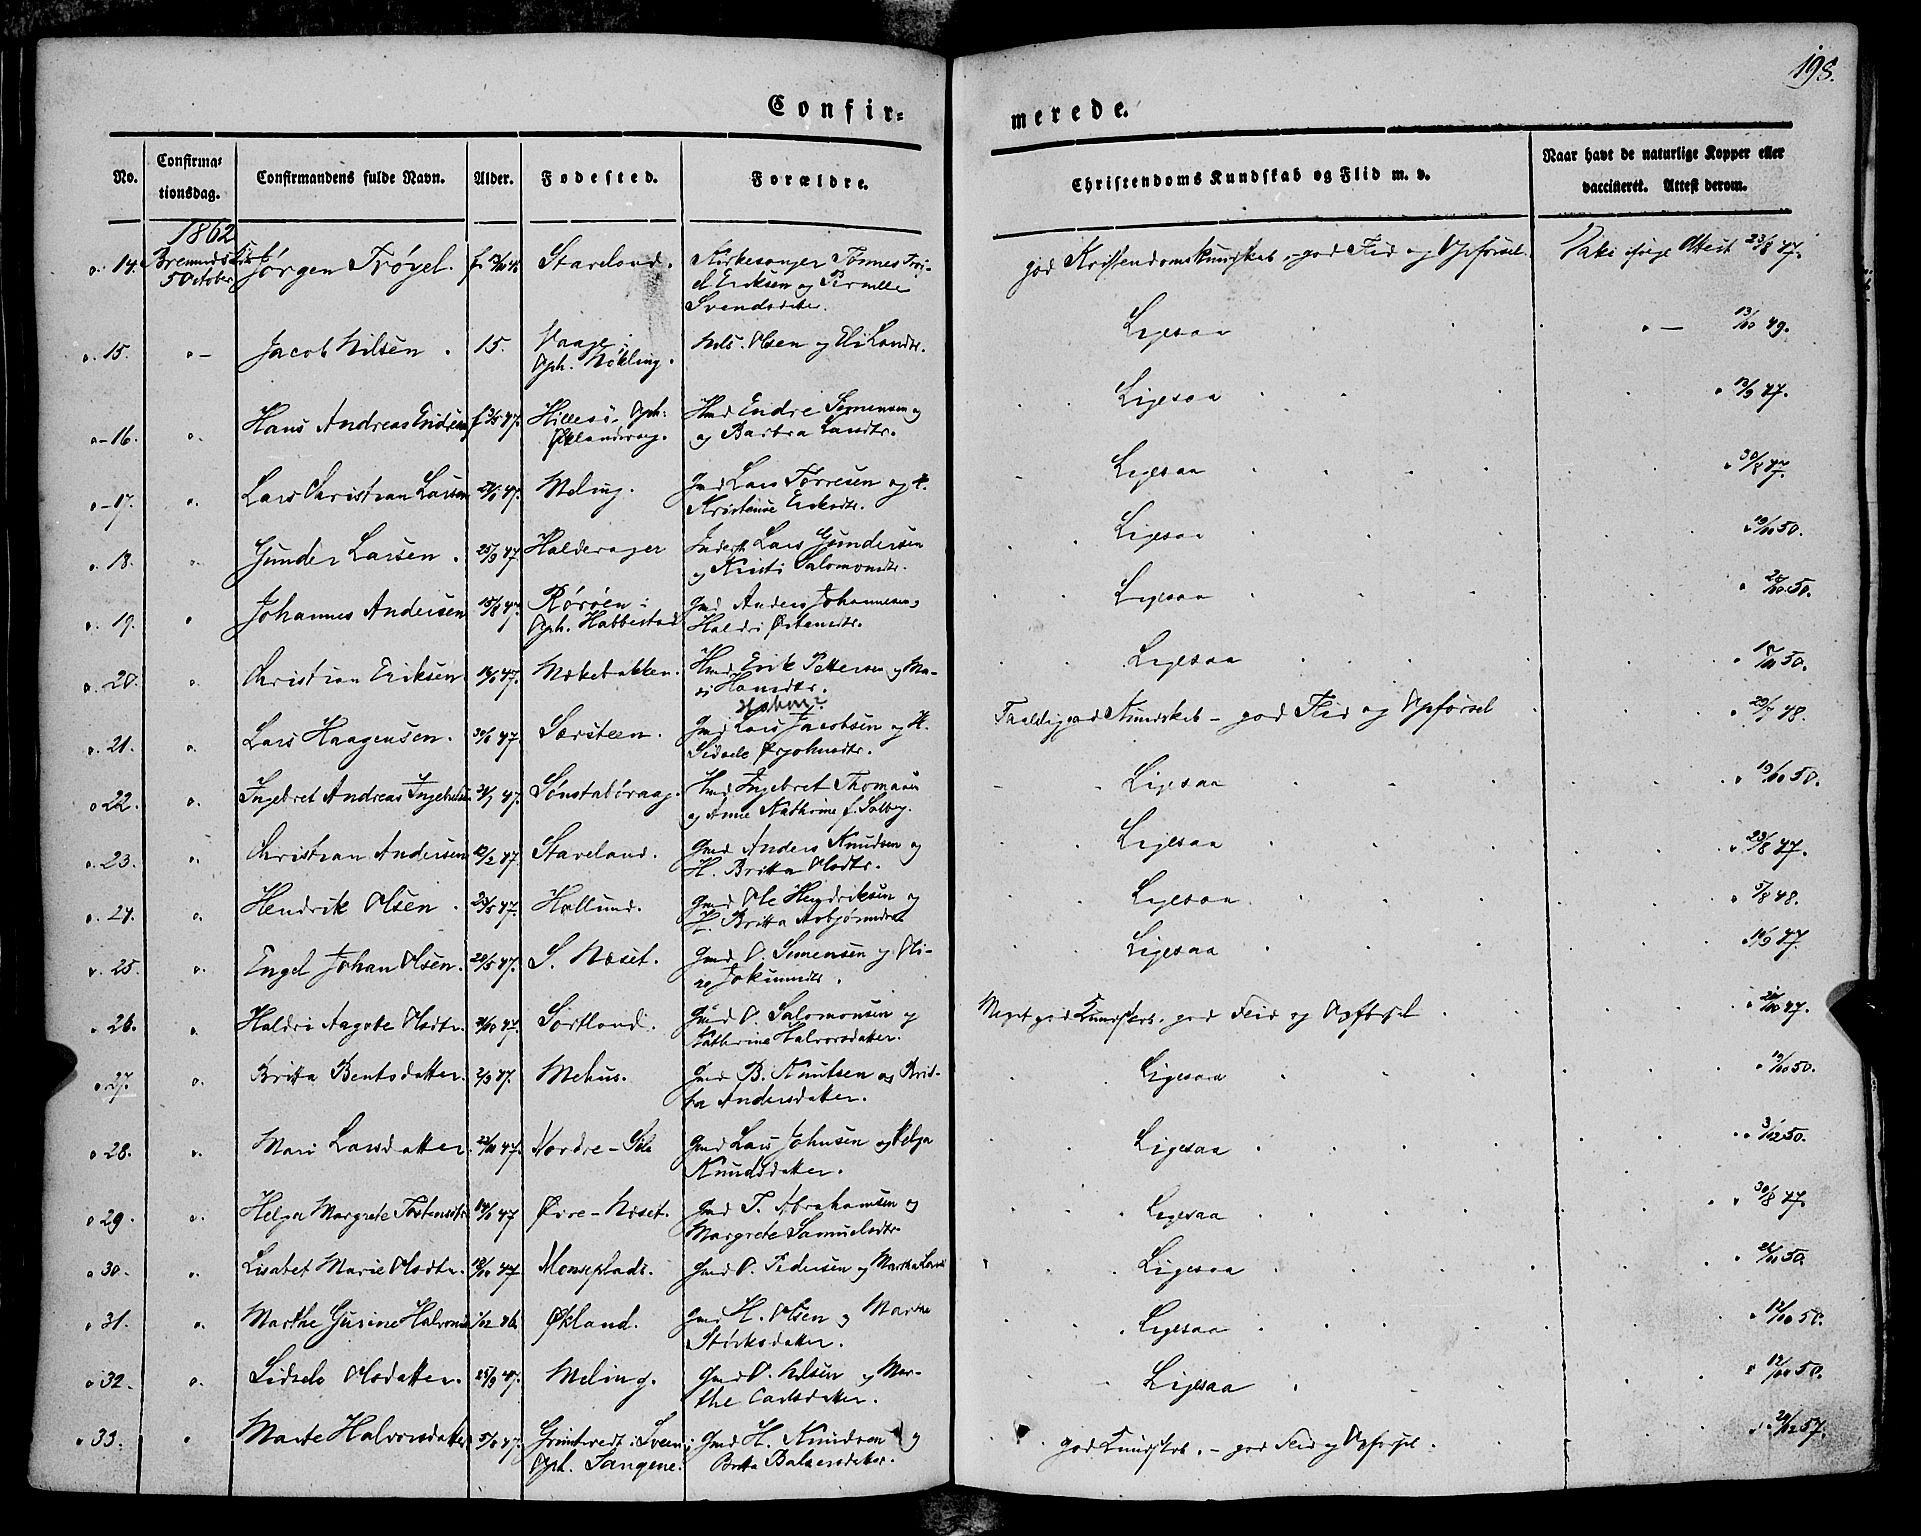 198.
Confir=
merede.
No.
Confirma=
tionsdag.
Confirmandens fulde Navn.
Alder.
Fødested.
Forældre.
Christendoms Kundskab og Flid m. v.
Naar havt de naturlige Kopper eller
vaccineret. Attest derom.
1862
14. 5 October Jørgen Trøyel. Staveland. Kirkesanger Tønnes Trøi-
el Eriksen og Pernille
Svendsdatter.
god Kristendomskundskab, god Flid og Opførsel. Attest 23/8 47.
15. Jacob Nilsen 15. Vaage i
Oph. Nökling. Nils Olsen og Eli Larsdtr. Ligesaa 13/10 49.
16. Hans Andreas Endresen Hillesö, Oph.
Öklandsvag. Hmd Endre Simensen og
og Barbra Larsdtr. Ligesaa 13/9 47.
17. Lars Christian Larsen Meling. Gmd Lars Tørresen og H.
Kristense Eriksdtr. Ligesaa 30/8 47.
18. Gunder Larsen 25/9 47 Halderager Inderst Lars Gundersen
og Kirsti Salomonsdtr. Ligesaa 19/10 50.
19. Johannes Andersen 15/8 47 Rörøen i
Oph. Habbestad Gmd Anders Johannesen,
Haldri Østensdtr. Ligesaa
20. Christian Eriksen Mækebakken. Hmd Erik Pettersen og Ma-
ri Hansdtr. Ligesaa
21. Lars Haagensen. 30/6 47. Særsteen. Gmd Lars Jacobsen og H.
Sidsele Ørjohnsdtr. god Kundskab - god Flid og Opførsel 48.
22. Ingebret Andreas Ingebretsen 47. Sønstabøvaag. Hmd Ingebret Thomasen
og Anne Kathrine f. Solberg. Ligesaa 19/10 50.
23. Christian Andersen 12/2 47. Staveland. Gmd Anders Knudsen og
H. Britta Olsdtr. Ligesaa 23/8 47.
24. Hendrik Olsen 47. Hollund. Gmd Ole Hendriksen og
H. Britta Asbjørnsdtr. Ligesaa 5/8 48.
25. Engel Johan Olsen. 28/5 47. S. Nøset. Gmd O. Simensen og Oli-
ne Jokumsdtr. Ligesaa 47.
26. Haldri Aagote Olsdtr. Sørtland. Gmd O. Salomonsen og
Kathrine Halvorsdatter. Meget god Kundskab, god Flid og Opførsel 47.
27. Britta Bentsdatter. 2/3 47. Mehus. Gmd B. Knutsen og Brit-
ta Andersdatter. Ligesaa 19/10 50.
28. Mari Larsdatter. 47. Nordre-Sile Gmd Lars Johnsen og Helga
Knudsdatter. Ligesaa 3/12 50.
29. Helga Margrete Torstensdtr. 47 Øvre-Nøset. Gmd T. Abrahamsen og
Margrete Samuelsdtr. Ligesaa 30/8 47.
30. Lisabet Marie Olsdtr. 47. Monseplads. Gmd O. Pedersen og Martha Larsd. Ligesaa 50.
31. Marthe Gurine Halvorsd. 1/12 46. Økland. Gmd H. Olsen og Marthe
Størksdatter. Ligesaa 12/10 50.
32. Sidsele Olsdatter. 25/9 47. Meling. Gmd O. Nilsen og Mar-
the Carlsdatter. Ligesaa 12/10 50.
33. Marte Halvorsdatter 47. Grintvedt i Sveen;
Oph. Tangene. Gmd H. Knudsen og
Britta Baltersdatter. god Kundskab, - god Flid og Opførsel. 57.